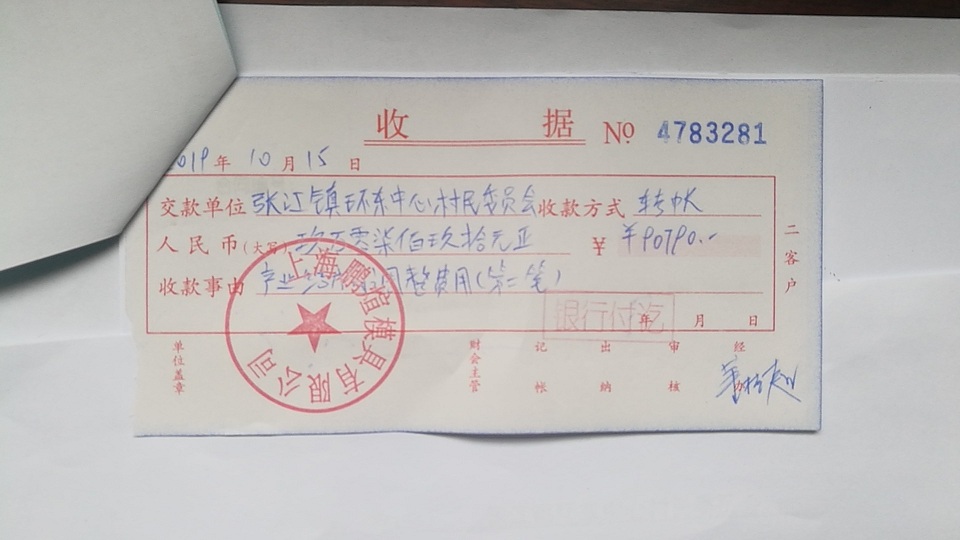 收 据 № 4783281
2019 年 10 月 15 日
交款单位 张江镇环东中心村民委员会 收款方式 转帐
人民币(大写) 玖万零柒佰玖拾元正 ¥ ¥90790.-
收款事由 产业 调整费用(第二笔)
二客户
上海鹏 模具有限公司
银行付讫
年 月 日
单位盖章 财会主管 记帐 出纳 审核 经办